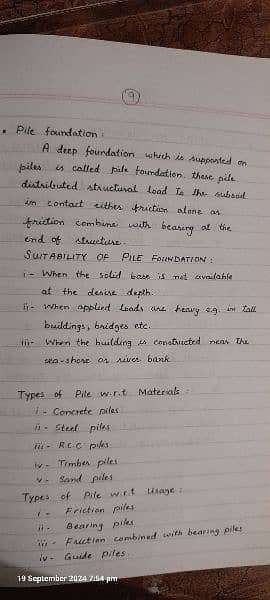 9
• Pile foundation :
A deep foundation which is supported on
piles is called pile foundation. these pile
distributed structural load to the subsoil
in contact either friction alone or
friction combine with bearing at the
end of structure.
SUITABILITY OF PILE FOUNDATION :
i - When the solid base is not available
at the desire depth.
ii- When applied loads are heavy e.g. in tall
buildings, bridges etc.
iii- When the building is constructed near the
sea-shore or river bank
Types of Pile w.r.t Materials :
i - Concrete piles
ii - Steel piles
iii - R.C.C piles
iv- Timber piles
v- Sand piles
Types of Pile w.r.t Usage :
i - Friction piles
ii- Bearing piles
iii - Friction combined with bearing piles
iv- Guide Piles.
19 September 2024 7:54 pm